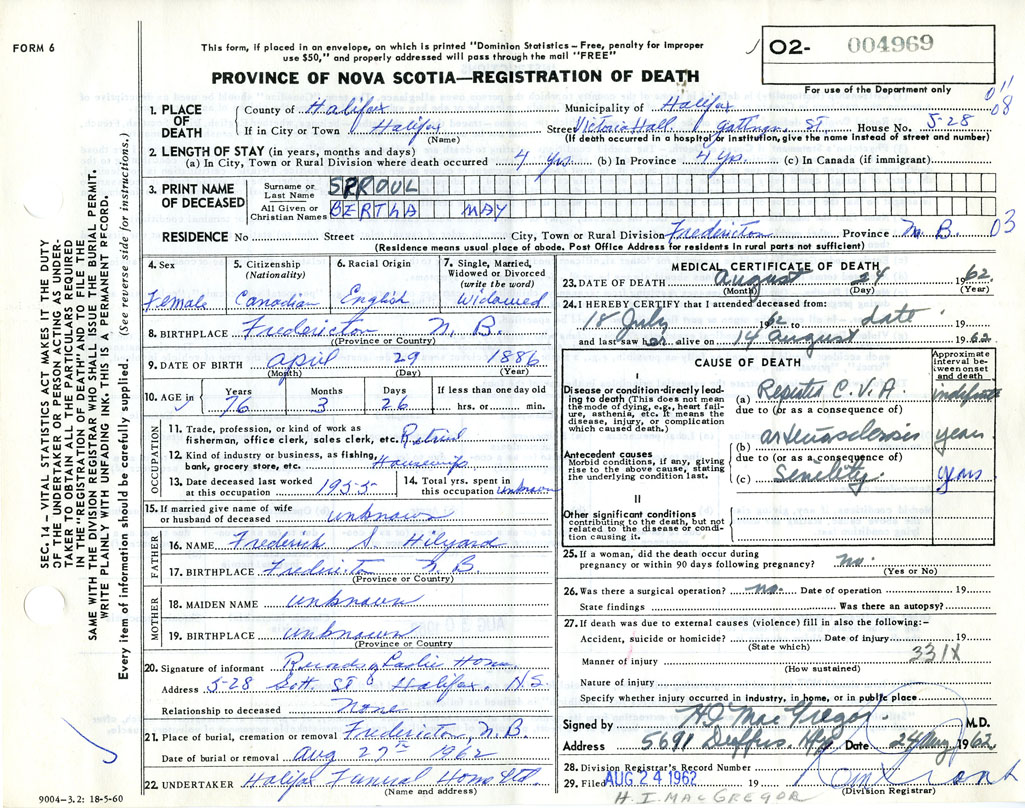 FORM 6
This form, if placed in an envelope, on which is printed "Dominion Statistics – Free, penalty for improper
use $50," and properly addressed will pass through the mail "FREE"
PROVINCE OF NOVA SCOTIA—REGISTRATION OF DEATH
02- 004969
For use of the Department only
11
08
1. PLACE OF DEATH
County of Halifax Municipality of Halifax
If in City or Town Halifax Street Victoria Hall Gottingen ST House No. 5-28
(Name) (If death occurred in a hospital or institution, give the name instead of street and number)
2. LENGTH OF STAY (in years, months and days)
(a) In City, Town or Rural Division where death occurred 4 yrs. (b) In Province 4 yrs. (c) In Canada (if immigrant)
3. PRINT NAME OF DECEASED
Surname or Last Name SPROUL
All Given or Christian Names BERTHA MAY
RESIDENCE No. Street City, Town or Rural Division Fredericton Province N. B. 03
(Residence means usual place of abode. Post Office Address for residents in rural parts not sufficient)
4. Sex Female
5. Citizenship (Nationality) Canadian
6. Racial Origin English
7. Single, Married, Widowed or Divorced (write the word) Widowed
8. BIRTHPLACE Fredericton N. B.
(Province or Country)
9. DATE OF BIRTH April 29 1886
(Month) (Day) (Year)
10. AGE in Years 76 Months 3 Days 26 If less than one day old hrs. or min.
OCCUPATION
11. Trade, profession, or kind of work as
fisherman, office clerk, sales clerk, etc. Retired
12. Kind of industry or business, as fishing,
bank, grocery store, etc. Housewife
13. Date deceased last worked
at this occupation 1955
14. Total yrs. spent in
this occupation unknown
15. If married give name of wife
or husband of deceased unknown
FATHER
16. NAME Frederick S. Hilyard
17. BIRTHPLACE Fredericton N. B.
(Province or Country)
MOTHER
18. MAIDEN NAME unknown
19. BIRTHPLACE unknown
(Province or Country)
20. Signature of informant Home
Address 5-28 Gott. ST Halifax, N.S.
Relationship to deceased None
21. Place of burial, cremation or removal Fredericton N.B.
Date of burial or removal Aug 27th 1962
22. UNDERTAKER Halifax Funeral Home Ltd.
(Name and address)
9004–3.2: 18-5-60
MEDICAL CERTIFICATE OF DEATH
23. DATE OF DEATH August 24 1962
(Month) (Day) (Year)
24. I HEREBY CERTIFY that I attended deceased from:
18 July 1962 to date 19
and last saw her alive on 14 August 1962
CAUSE OF DEATH
Approximate interval between onset and death
I
Disease or condition directly leading to death (This does not mean the mode of dying, e.g., heart failure, asthenia, etc. It means the disease, injury, or complication which caused death.)
(a) C.V.A.
due to (or as a consequence of)
Antecedent causes
Morbid conditions, if any, giving rise to the above cause, stating the underlying condition last.
(b) arteriosclerosis years
due to (or as a consequence of)
(c) Senility years
II
Other significant conditions
contributing to the death, but not related to the disease or condition causing it.
25. If a woman, did the death occur during
pregnancy or within 90 days following pregnancy? no.
(Yes or No)
26. Was there a surgical operation? no. Date of operation 19
State findings Was there an autopsy?
27. If death was due to external causes (violence) fill in also the following:-
Accident, suicide or homicide? Date of injury 19
(State which)
Manner of injury 331X
(How sustained)
Nature of injury
Specify whether injury occurred in industry, in home, or in public place
Signed by H I MacGregor M.D.
Address 5691 Duffus, Hfx Date 24 Aug 1962
28. Division Registrar's Record Number
29. Filed AUG 24 1962 19
(Division Registrar)
H. I. MACGREGOR
SEC. 14 – VITAL STATISTICS ACT MAKES IT THE DUTY
OF THE UNDERTAKER OR PERSON ACTING AS UNDER-
TAKER TO OBTAIN ALL THE PARTICULARS REQUIRED
IN THE "REGISTRATION OF DEATH" AND TO FILE THE
SAME WITH THE DIVISION REGISTRAR WHO SHALL ISSUE THE BURIAL PERMIT.
WRITE PLAINLY WITH UNFADING INK. THIS IS A PERMANENT RECORD.
Every item of information should be carefully supplied. (See reverse side for instructions.)